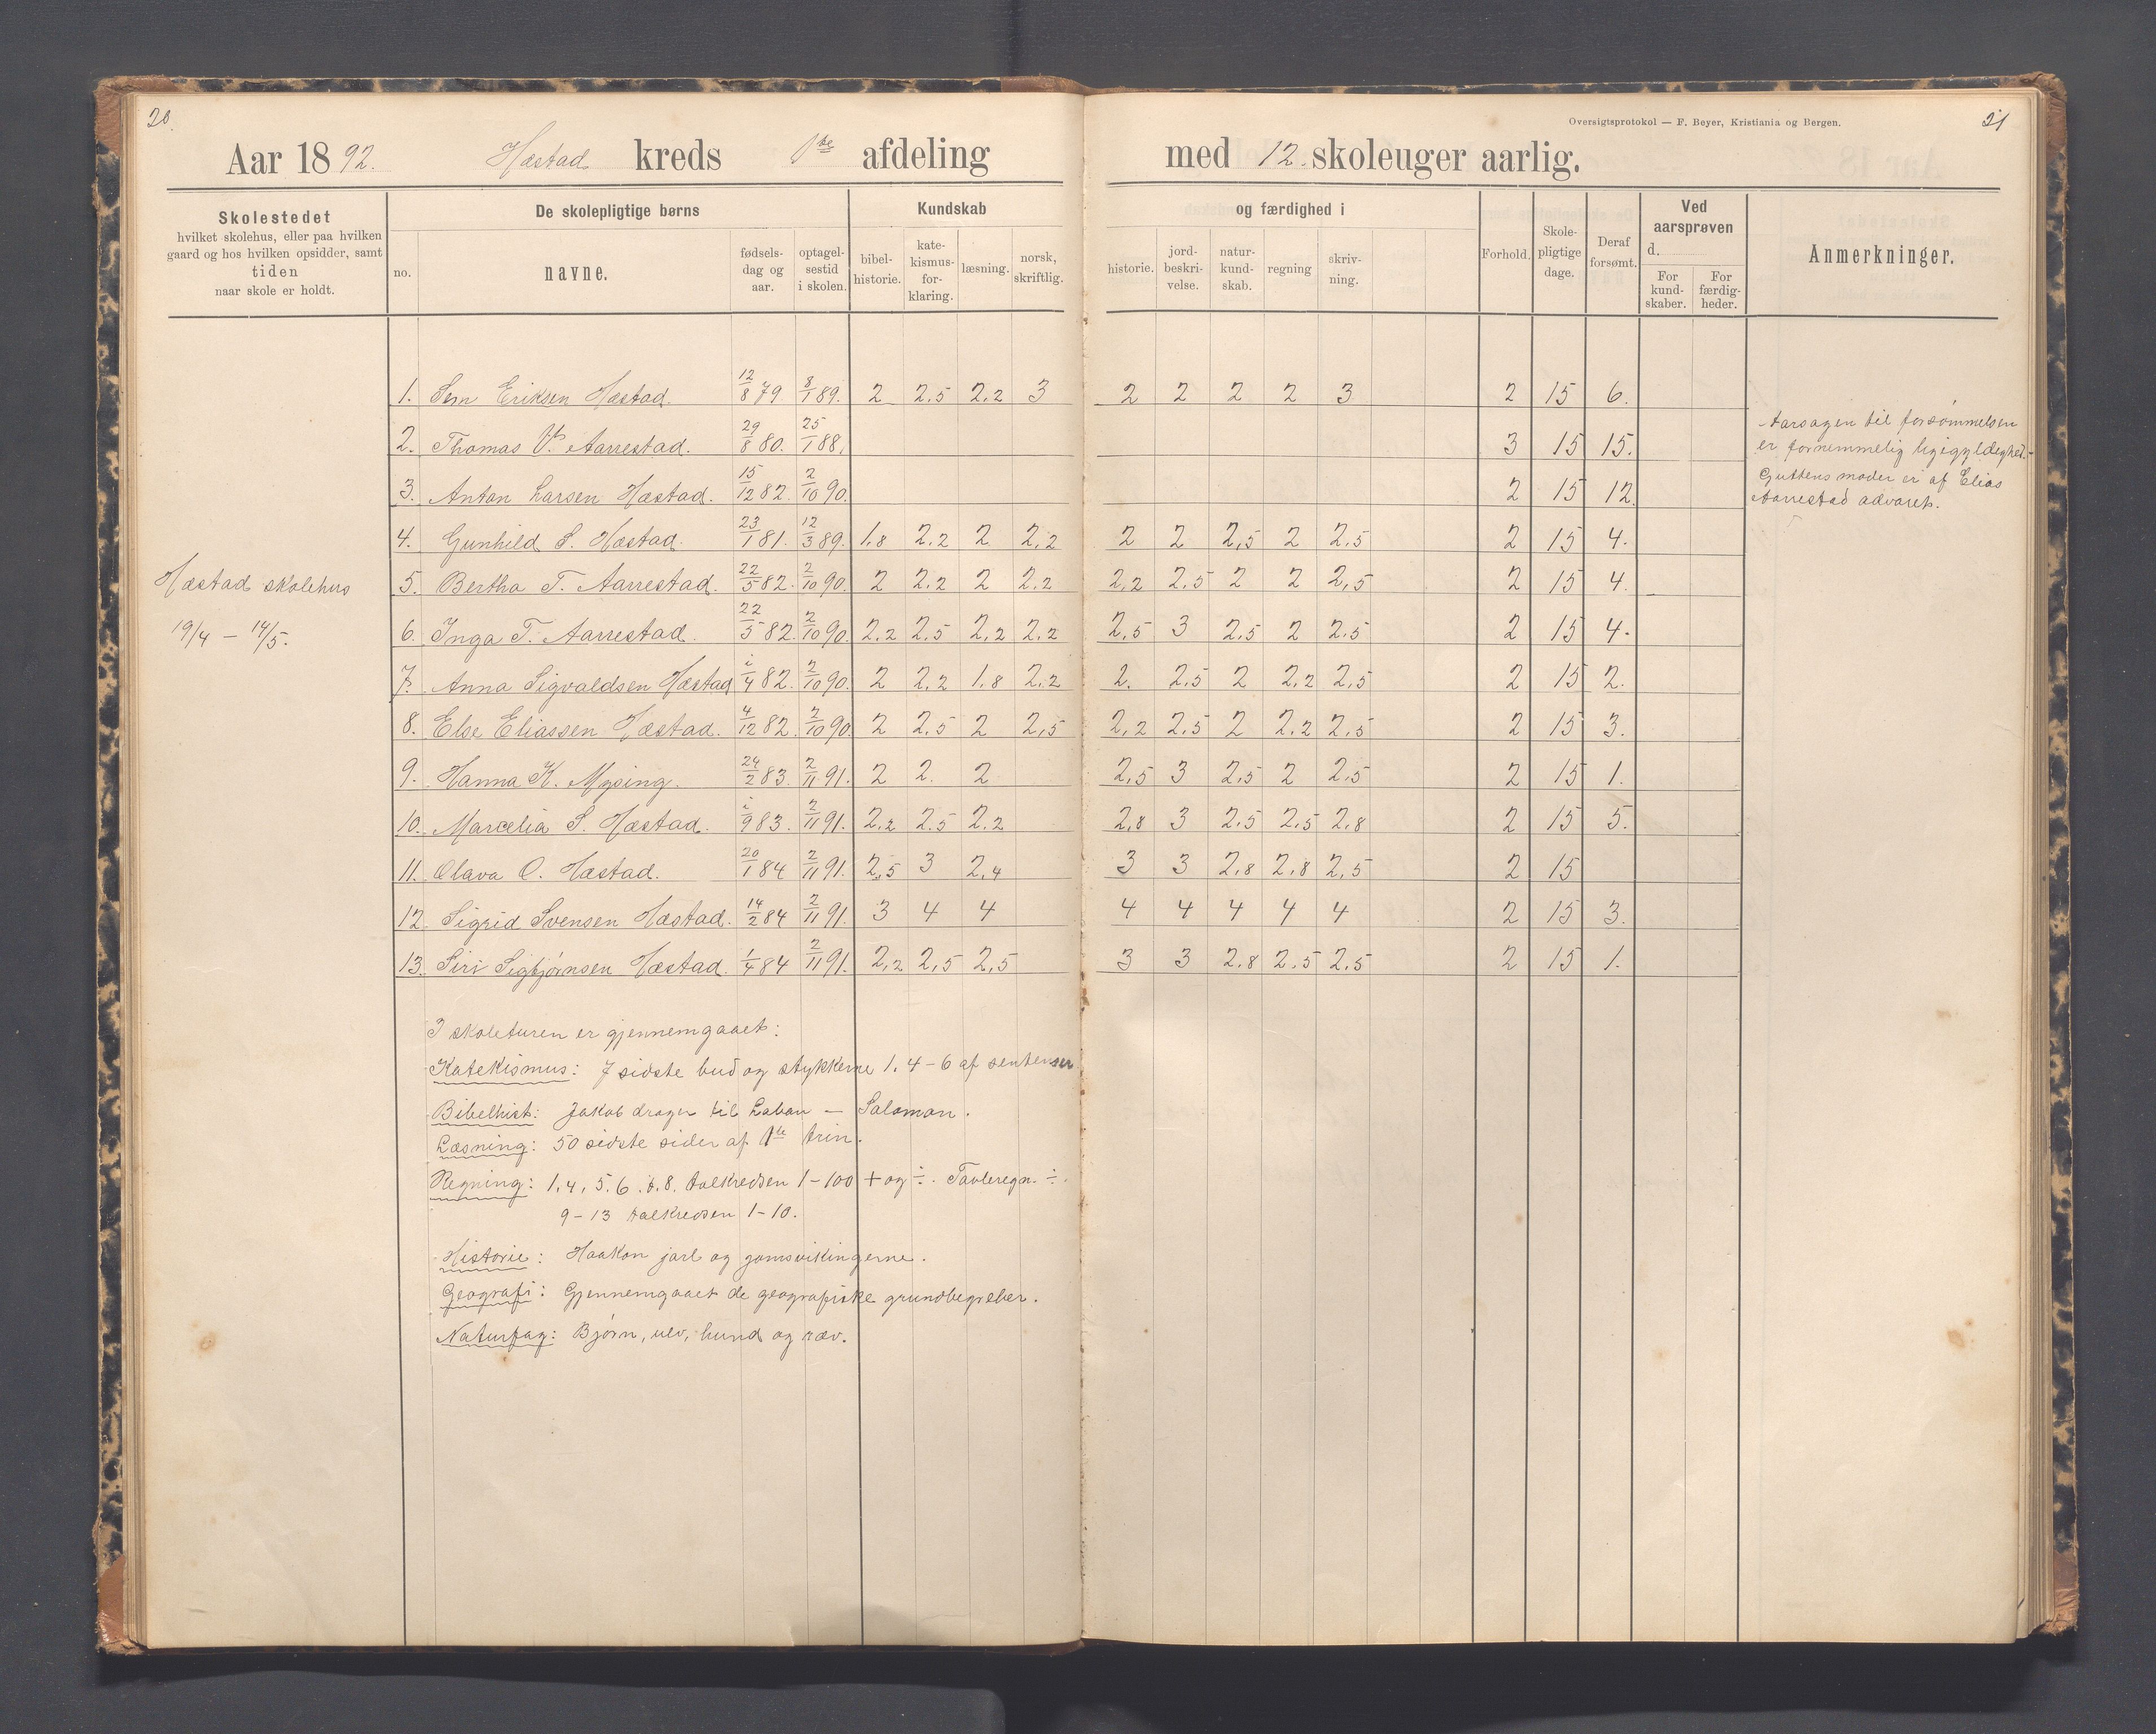 20.
21
Oversigtsprotokol — F. Beyer, Kristiania og Bergen.
Aar 1892. Hæstad kreds 1ste afdeling med 12 skoleuger aarlig.
Skolestedet hvilket skolehus, eller paa hvilken gaard og hos hvilken opsidder, samt tiden naar skole er holdt.
De skolepligtige børns
no. navne. fødsels-dag og aar. optagel-sestid i skolen.
Kundskab og færdighed i
bibel-historie. kate-kismus-for-klaring. læsning. norsk, skriftlig. historie. jord-beskri-velse. natur-kund-skab. regning skriv-ning.
Forhold. Skole-pligtige dage. Deraf forsømt.
Ved aarsprøven d.
For kund-skaber. For færdig-heder.
Anmerkninger.
1. Sem Eriksen Hæstad. 12/8 79 8/1 89. 2 2,5 2,2 3 2 2 2 2 3 2 15 6.
2. Thomas V. Aarrestad. 29/8 80. 25/1 88. 3 15 15.
3. Anton Larsen Hæstad. 15/12 82. 2/10 90. 2 15 12
4. Gunhild S. Hæstad. 23/1 81. 12/3 89. 1,8 2,2 2 2,2 2 2 2,5 2 2,5 2 15 4.
5. Bertha T. Aarrestad. 22/5 82. 2/10 90. 2 2,2 2 2,2 2,2 2,5 2 2 2,5 2 15 4.
6. Inga T. Aarrestad. 22/5 82. 2/10 90. 2,2 2,5 2,2 2,2 2,5 3 2,5 2 2,5 2 15 4.
7. Anna Sigvaldsen Hæstad 1/4 82. 2/10 90. 2 2,2 1,8 2,2 2. 2,5 2 2,2 2,5 2 15 2.
8. Else Eliassen Hæstad. 4/12 82. 2/10 90. 2 2,5 2 2,5 2,2 2,5 2 2,2 2,5 2 15 3.
9. Hanna K. Mysing. 24/2 83. 2/11 91. 2 2. 2 2,5 3 2,5 2 2,5 2 15 1.
10. Marcelia S. Hæstad. 1/9 83. 2/11 91. 2,2 2,5 2,2 2,8 3 2,5 2,5 2,8 2 15 5.
11. Olava O. Hæstad. 20/1 84 2/11 91. 2,5 3 2,4 3 3 2,8 2,8 2,5 2 15
12. Sigrid Svensen Hæstad. 14/2 84 2/11 91. 3 4 4 4 4 4 4 4 2 15 3.
13. Siri Sigbjørnsen Hæstad. 1/4 84 2/11 91. 2,2 2,5 2,5 3 3 2,8 2,5 2,5 2 15 1.
Hæstad skolehus
19/4 – 14/5.
Aarsagen til forsømmelsen
er fornemmelig ligegyldighed.-
Guttens moder er af Elias
Aarrestad advaret.
I skoleturen er gjennemgaaet:
Katekismus: 7 sidste bud og stykkerne 1. 4 – 6 af sentenser
Bibelhist: Jakob drager til Laban – Salomon.
Læsning: 50 sidste sider af 1ste trin.
Regning: 1. 4, 5. 6. 8. talkredsen 1–100 + og ÷. Tavleregn. ÷.
9 – 13 talkredsen 1–10.
Historie: Haakon jarl og jomsvikingerne.
Geografi: Gjennemgaaet de geografiske grundbegreber.
Naturfag: Bjørn, ulv, hund og ræv.